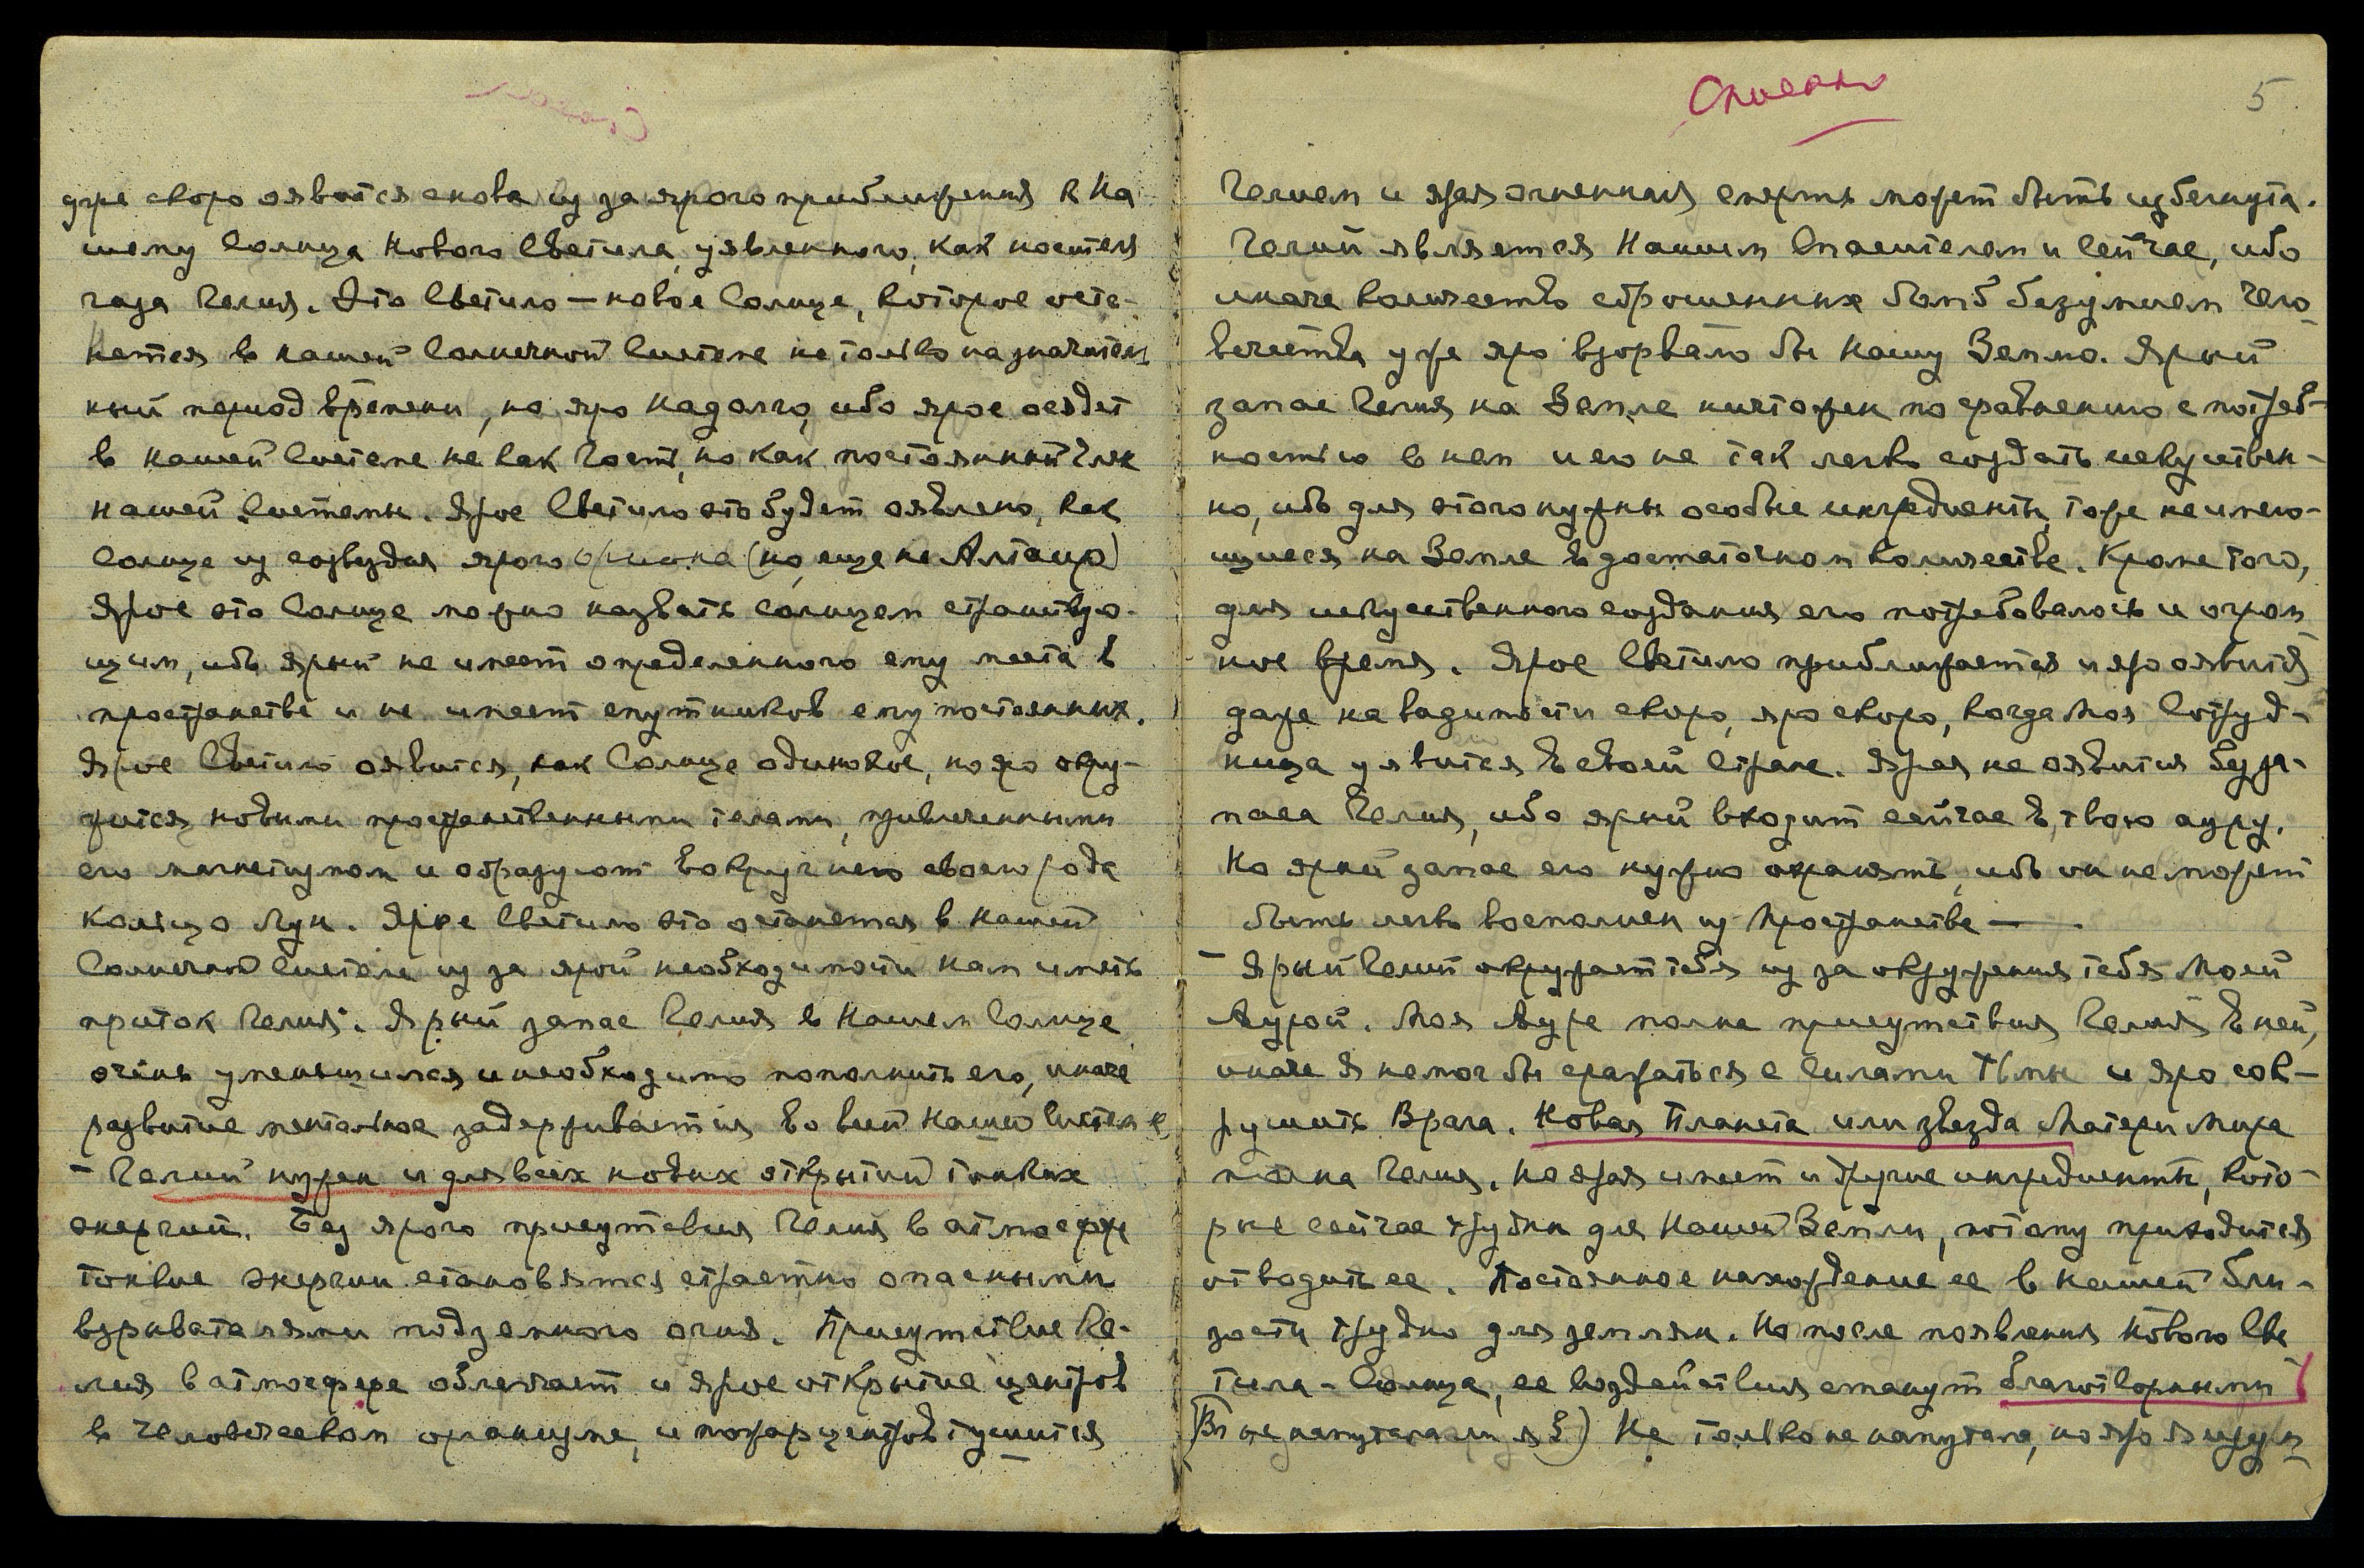 дре скоро оявится снова из за ярого приближения к На
шему Солнцу Нового Светила, уявленного, как носителя
газа Гелия. Это Светило — новое Солнце, которое оста-
нется в нашей Солнечной Системе не только на значитель
ный период времени, но яро надолго, ибо ярое осядет
в нашей Системе не как Гость, но как постоянный член
нашей Системы. Ярое Светило это будет оявлено, как
Солнце из созвездия ярого Ориона (но еще не Алтаир)
Ярое это Солнце можно назвать солнцем странствую-
щим, ибо ярый не имеет определенного ему места в
пространстве и не имеет спутников ему постоянных.
Ярое Светило оявится, как Солнце одинокое, но яро окру-
жится новыми пространственными телами, привлеченными
его магнетизмом и образуют вокруг него своего рода
кольцо Лун. Ярое Светило это останется в нашей
Солнечной Системе из за ярой необходимости нам иметь
приток Гелия. Ярый запас Гелия в Нашем Солнце
очень уменьшился и необходимо пополнить его, иначе
развитие ментальное задерживается во всей Нашей Системе
— Гелий нужен и для всех новых открытий тонких
энергий. Без ярого присутствия Гелия в атмосфере
тонкие энергии становятся страстно опасными
взрывателями подземного огня. Присутствие Ге-
лия в атмосфере облегчает и ярое открытие центров
в человеческом организме, и пожар центров тушится
Списано
5
Гелием и ярая огненная смерть может быть избегнута.
Гелий является Нашим Спасителем и сейчас, ибо
иначе количество сброшенных бомб безумием чело-
вечества уже яро взорвало бы нашу Землю. Ярый
запас Гелия на Земле ничтожен по сравнению с потреб-
ностью в нем и его не так легко создать искусствен-
но, ибо для этого нужны особые ингредиенты, тоже не имею-
щиеся на Земле в достаточном количестве. Кроме того,
для искусственного создания его потребовалось и огром
ное время. Ярое Светило приближается и яро оявится
даже на видимости скоро, яро скоро, когда Моя Сотруд-
ница уявится в своей стране. Ярая не оявится без за-
паса Гелия, ибо ярый входит сейчас в твою ауру.
Но ярый запас его нужно охранять, ибо он не может
быть легко восполнен из Пространства — .
— Ярый Гелий окружает тебя из за окружения тебя Моей
Аурой. Моя Аура полна присутствия Гелия в ней,
иначе Я не мог бы сражаться с силами Тьмы и яро сок-
рушить Врага. Новая Планета или звезда Матери Мира
полна Гелия. Но ярая имеет и другие ингредиенты, кото-
рые сейчас трудны для Нашей Земли, потому приходится
отводить ее. Постоянное нахождение ее в нашей бли-
зости трудно для землян. Но после появления Нового Све
тила-Солнца, ее воздействия станут благотворными
(Вл не напутала ли я?) Не только не напутала, но яро